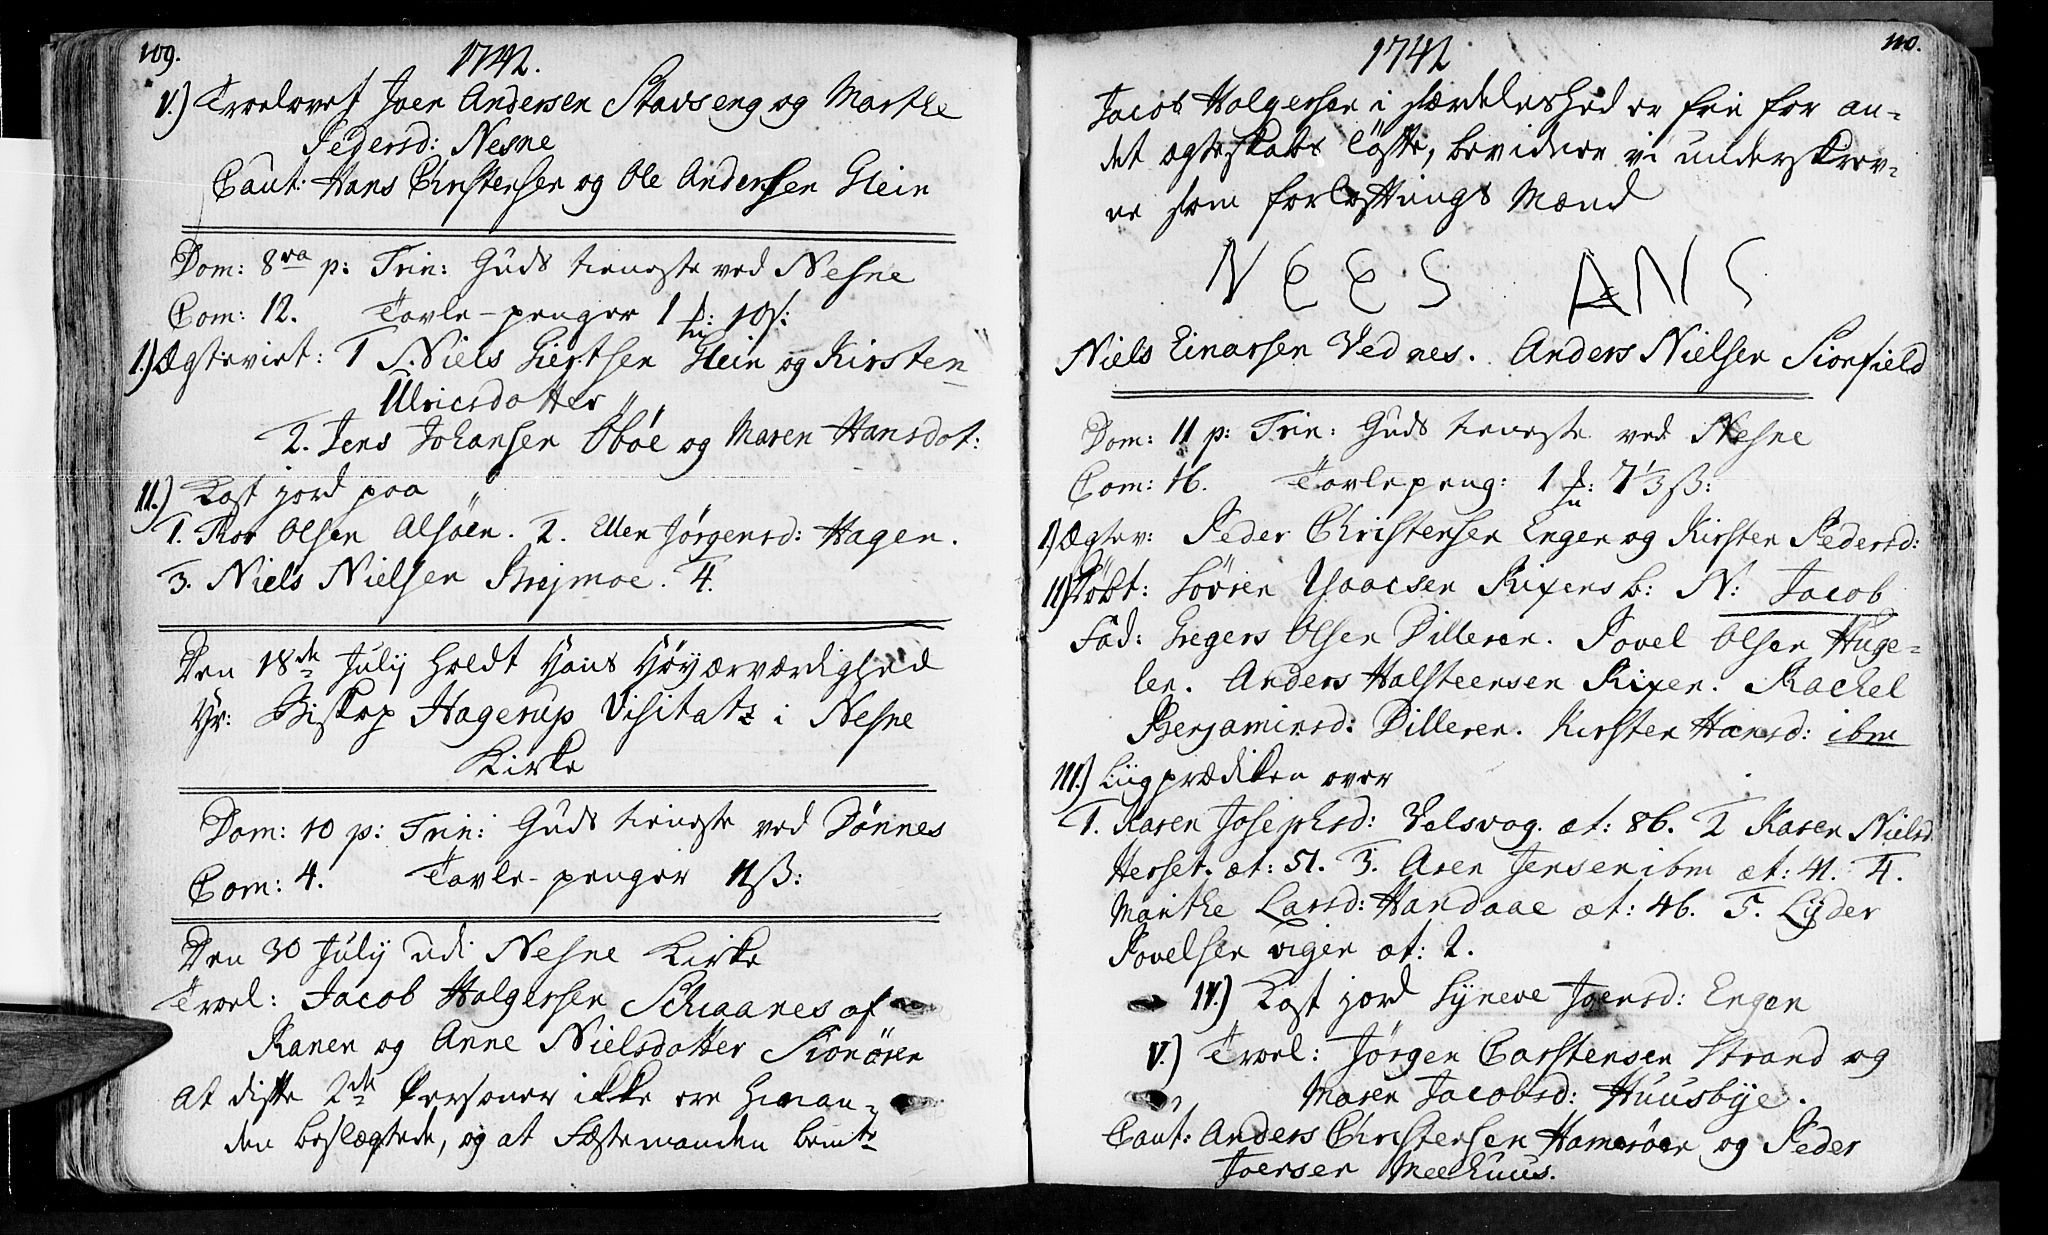 109.
1742.
V.) Troelovet Joen Andersen Stavseng og Marthe
Pedersd: Nesne
Caut: Hans Christensen og Ole Andersen Glein
Dom: 8va p: Trin: Guds tieneste ved Nesne
Com: 12. Tavle-penger 1 10 ß:
1.) Ægteviet: 1 S. Niels Giertsen Glein og Kirsten
Ulricsdotter
2. Jens Johansen Oböe og Maren Hansdot:
11.) Kast jord paa
1. Roe Olsen Alsöen. 2. Ellen Jørgensd: Hagen.
3. Niels Nielsen Breimoe. 4.
Den 18de July holdt Hans Höyærværdighed
Hr: Biskop Hagerup Visitatz i Nesne
Kirke
Dom: 10 p: Trin: Guds tieneste ved Dönnes
Com: 4. Tavle-penger 11 ß:
Den 30 July udi Nesne Kirke
Troel: Jacob Holgersen Schiaanes af
Ranen og Anne Nielsdotter Sionösen
at disse 2de Personer ikke ere hinan-
den beslægtede, og at Fæstemanden bemte
110.
1742
Jacob Holgersen i særdeleshed er frie for an-
det egteskabs löfte, bevidner vi underskrev-
ne som forlovnings Mænd
N E E S ANS
Niels Einarsen Vednes. Anders Nielsen Sionfield
Dom: 11 p: Trin: Guds tieneste ved Nesne
Com: 16. Tavlepeng: 1 7 1/3 ß:
1.) Ægtev: Peder Christensen Engen og Kirsten Pedersd:
11.) Döbt: Sören Isaacsen Rixens b: N: Jacob
Fad: Gregers Olsen Dilleren. Povel Olsen Huge-
len. Anders Halsteensen Rixen. Rachel
Benjaminsd: Dilleren. Kirsten Hansd: ibm
111.) Liigprædiken over
1. Karen Josephsd: Valsvog. æt: 86. 2 Karen Nielsd
Herset. æt: 51. 3. Aren Jensen ibm æt: 41. 4.
Marithe Larsd: Handaae æt: 46. 5. Lyder
Povelsen vigen æt: 2.
1V.) Kast jord Syneve Joensd: Engen
V.) Troel: Jörgen Carstensen Strand og
Maren Jacobsd: Huusbye.
Caut: Anders Christensen Hameröen og Peder
Joensen Meehuus.